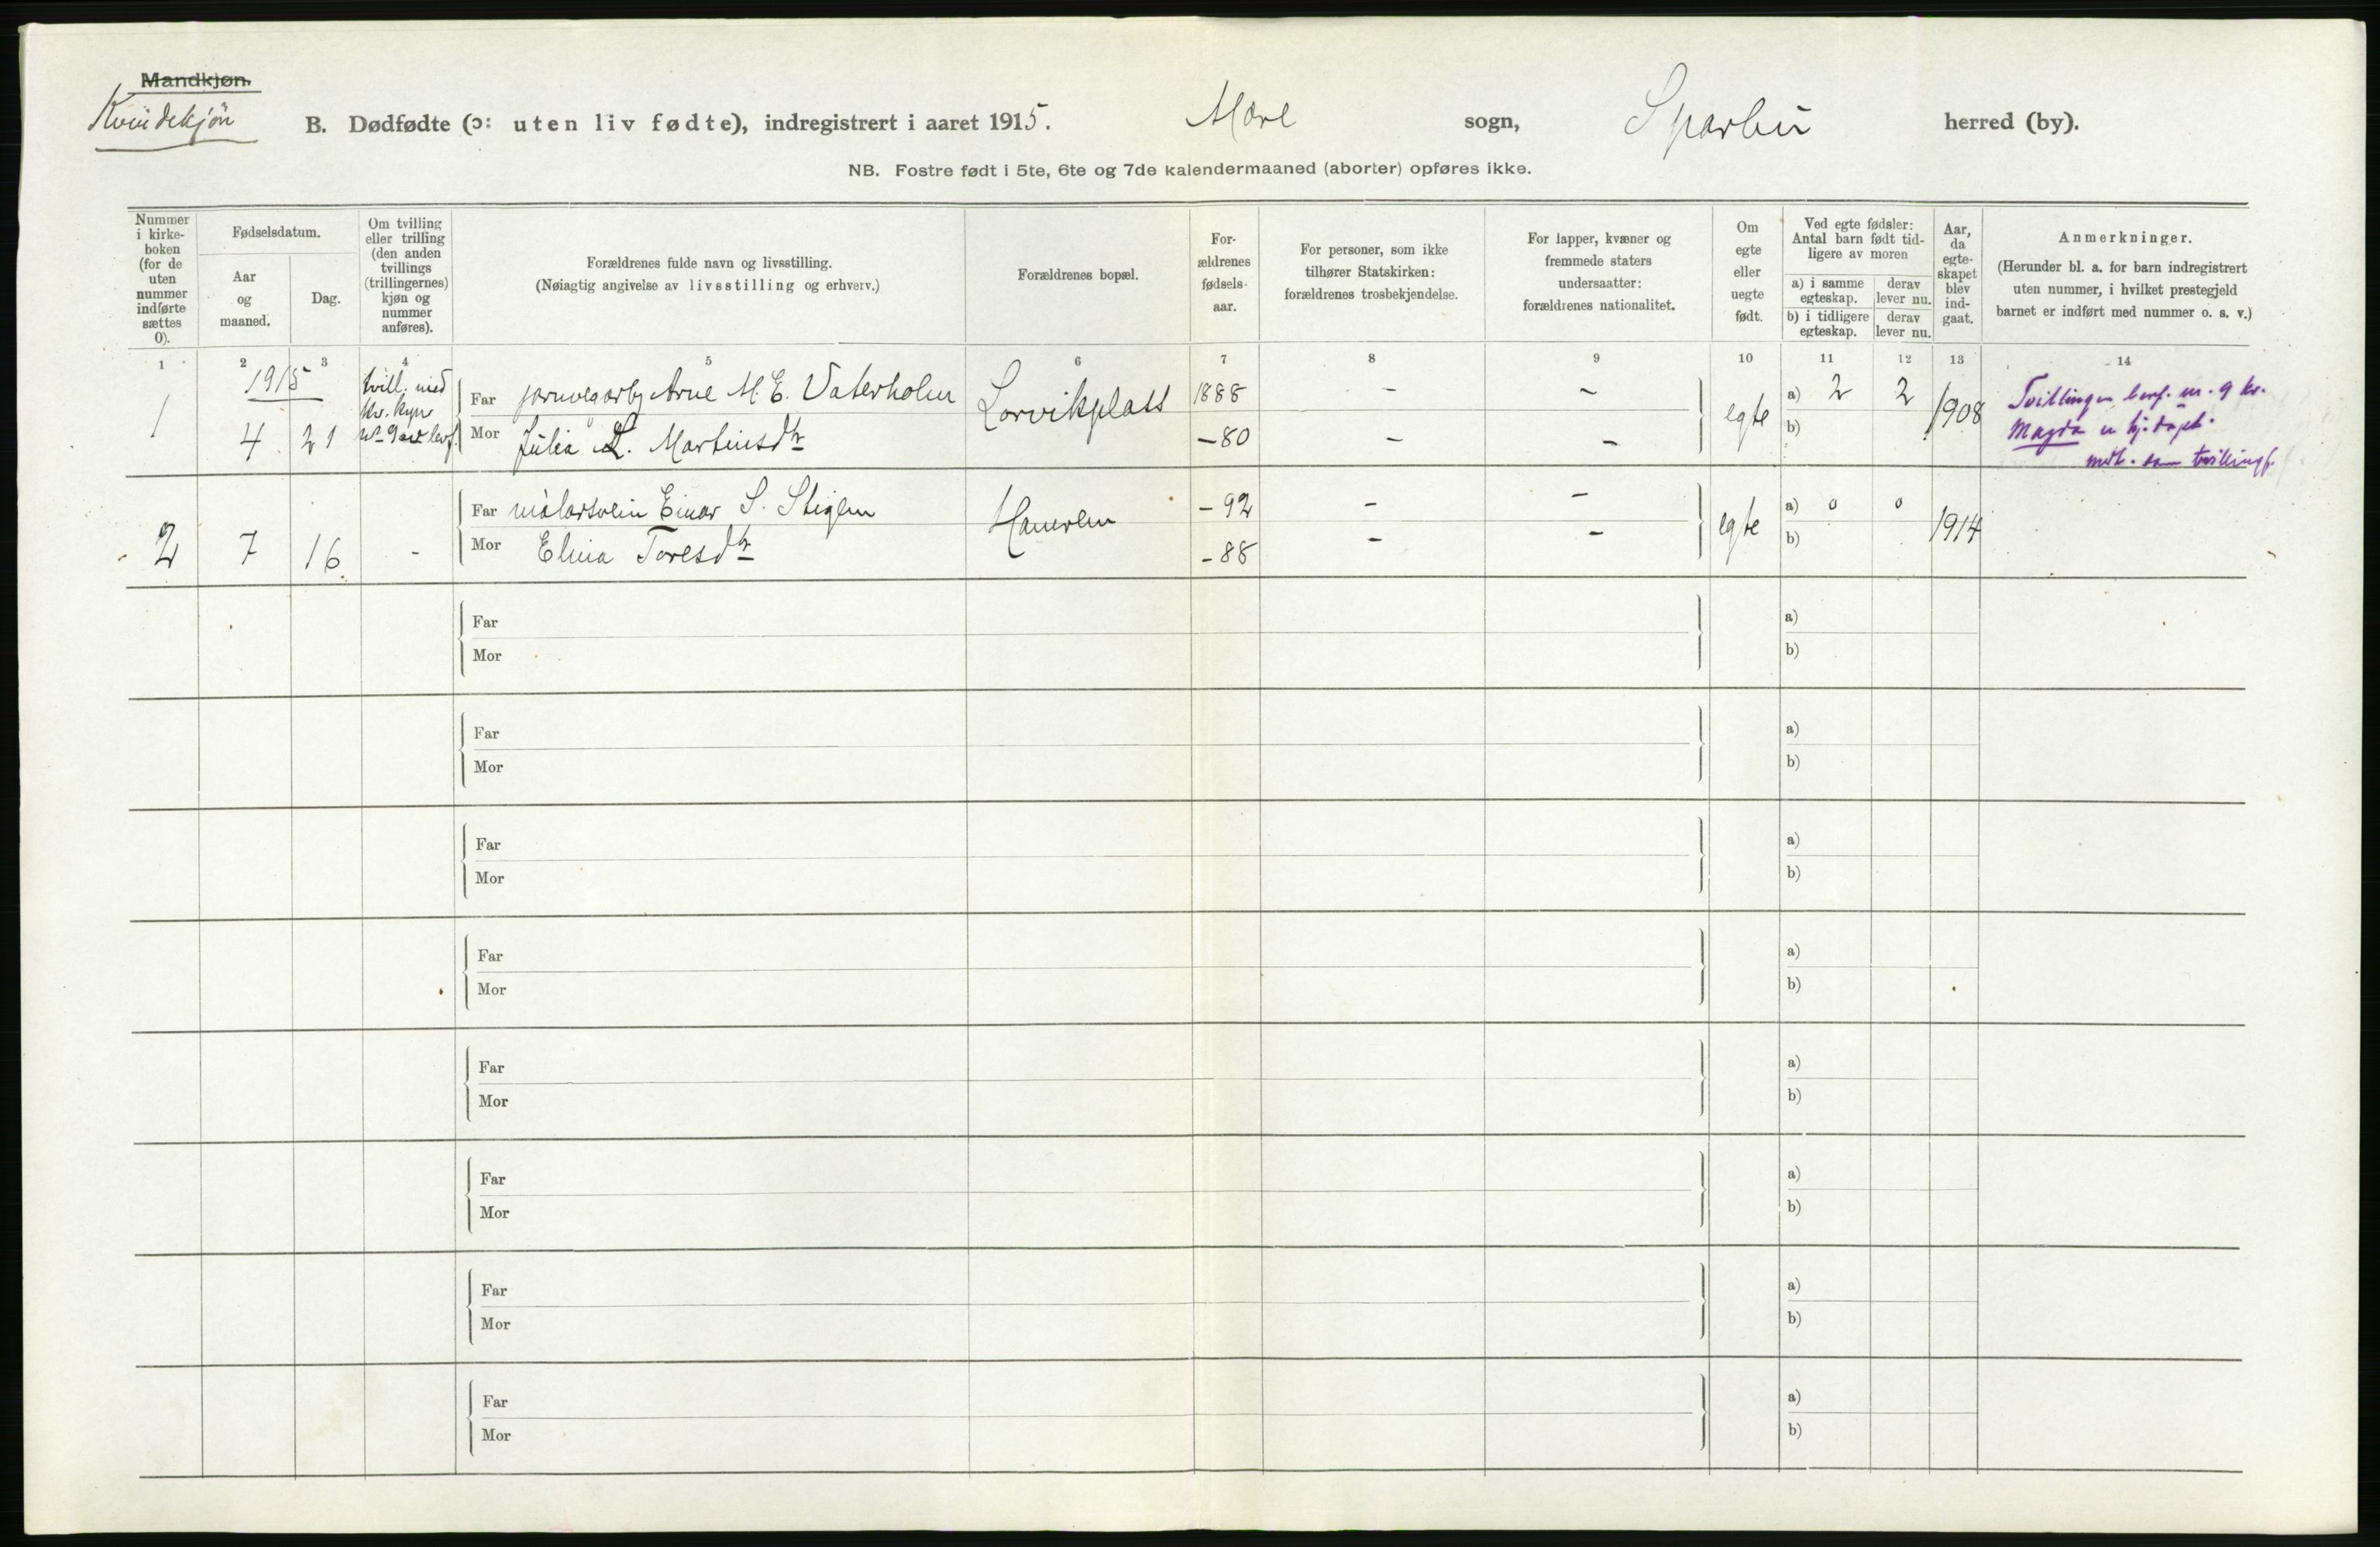 Mandkjøn.
Kvindekjøn
B. Dødfødte (ɔ: uten liv fødte), indregistrert i aaret 1915. Mære sogn, Sparbu herred (by).
NB. Fostre født i 5te, 6te og 7de kalendermaaned (aborter) opføres ikke.
Nummer i kirke-boken (for de uten nummer indførte sættes 0).
Fødselsdatum.
Aar og maaned.
Dag.
Om tvilling eller trilling (den anden tvillings (trillingernes) kjøn og nummer anføres).
Forældrenes fulde navn og livsstilling.
(Nøiagtig angivelse av livsstilling og erhverv.)
Forældrenes bopæl.
For-ældrenes fødsels-aar.
For personer, som ikke tilhører Statskirken: forældrenes trosbekjendelse.
For lapper, kvæner og fremmede staters undersaatter: forældrenes nationalitet.
Om egte eller uegte født.
Ved egte fødsler: Antal barn født tid-ligere av moren
a) i samme egteskap.
derav lever nu.
b) i tidligere egteskap.
derav lever nu.
Aar, da egte-skapet blev ind-gaat.
Anmerkninger.
(Herunder bl. a. for barn indregistrert uten nummer, i hvilket prestegjeld barnet er indført med nummer o. s. v.)
1 2 3 4 5 6 7 8 9 10 11 12 13 14
1915
tvill. med
Far Arne M. E. Vaterholm Lorvikplass 1888 - - a) 2 2
1 4 21
Mor Julia L. Martinsdtr -80 - - egte b) 1908
Tvillingen levf. nr. 9 kv.
Magda
Far målarsvein Einar S. Stiglen -92 - - a) 0 0
2 7 16. - Mor Elina Toresdtr -88 - - egte b) 1914
Far a)
Mor b)
Far a)
Mor b)
Far a)
Mor b)
Far a)
Mor b)
Far a)
Mor b)
Far a)
Mor b)
Far a)
Mor b)
Far a)
Mor b)